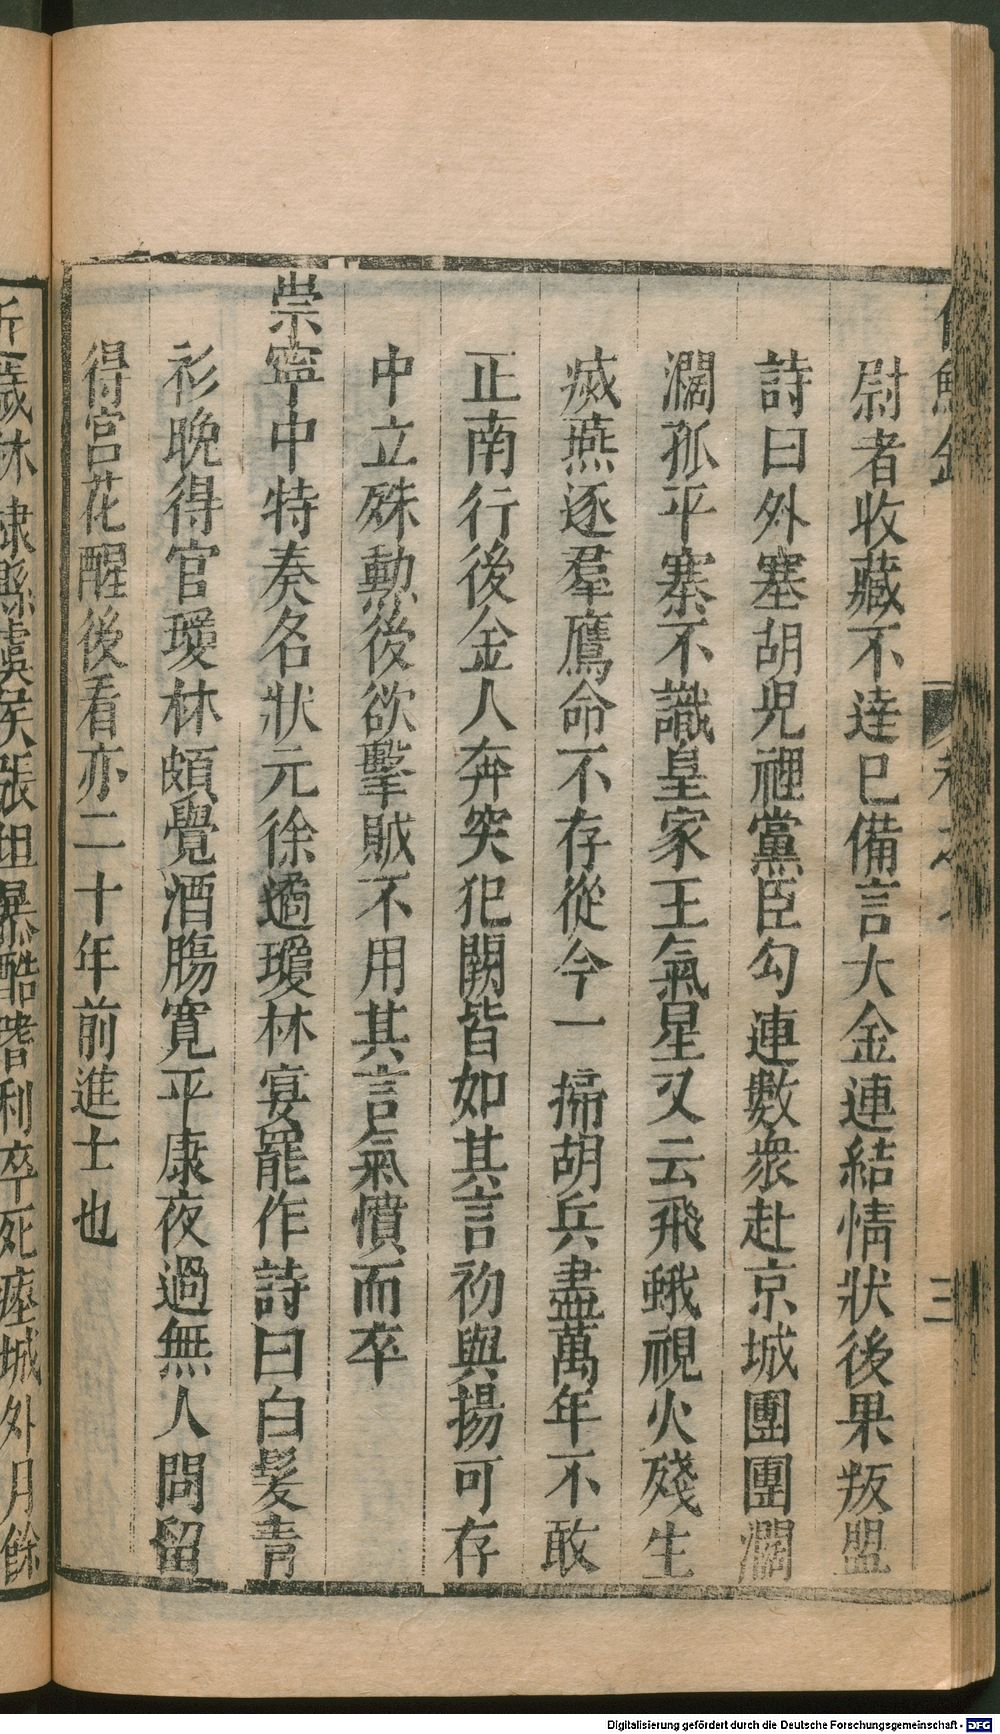 尉者收藏不達已備言大金連結情狀後果叛盟
詩曰外塞胡兒裡黨臣勾連數衆赴京城團團濶
濶孤平寨不識皇家王氣星又云飛蛾視火殘生
㓕燕逐羣鷹命不存從今一掃胡兵盡萬年不敢
正南行後金人奔突犯闕皆如其言初與揚可存
中立殊勳後欲擊賊不用其言氣憤而卒
崇寧中特奏名狀元徐遹瓊林宴罷作詩曰白髮青
衫晚得官瓊林頗覺酒膓寬平康夜過無人問留
得宮花醒後看亦二十年前進士也
近歲林隷縣虞侯張坦暴酷嗜利卒死瘞城外月餘
三
Digitalisierung gefördert durch die Deutsche Forschungsgemeinschaft - DFG